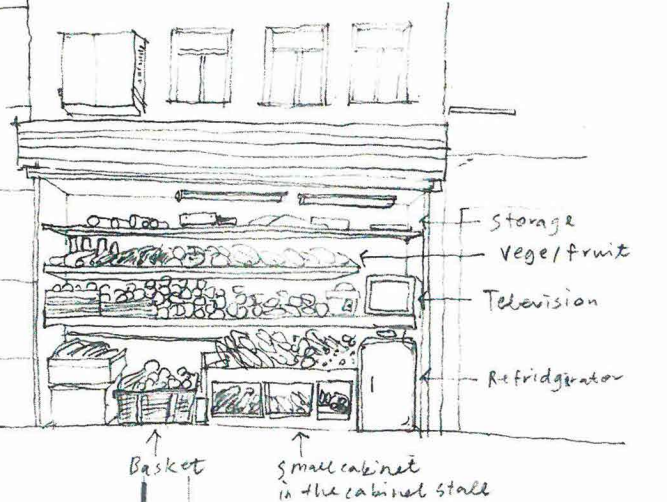 Storage
Vege/fruit
Television
Refridgirator
Basket
Small cabinet
in the cabinet stall